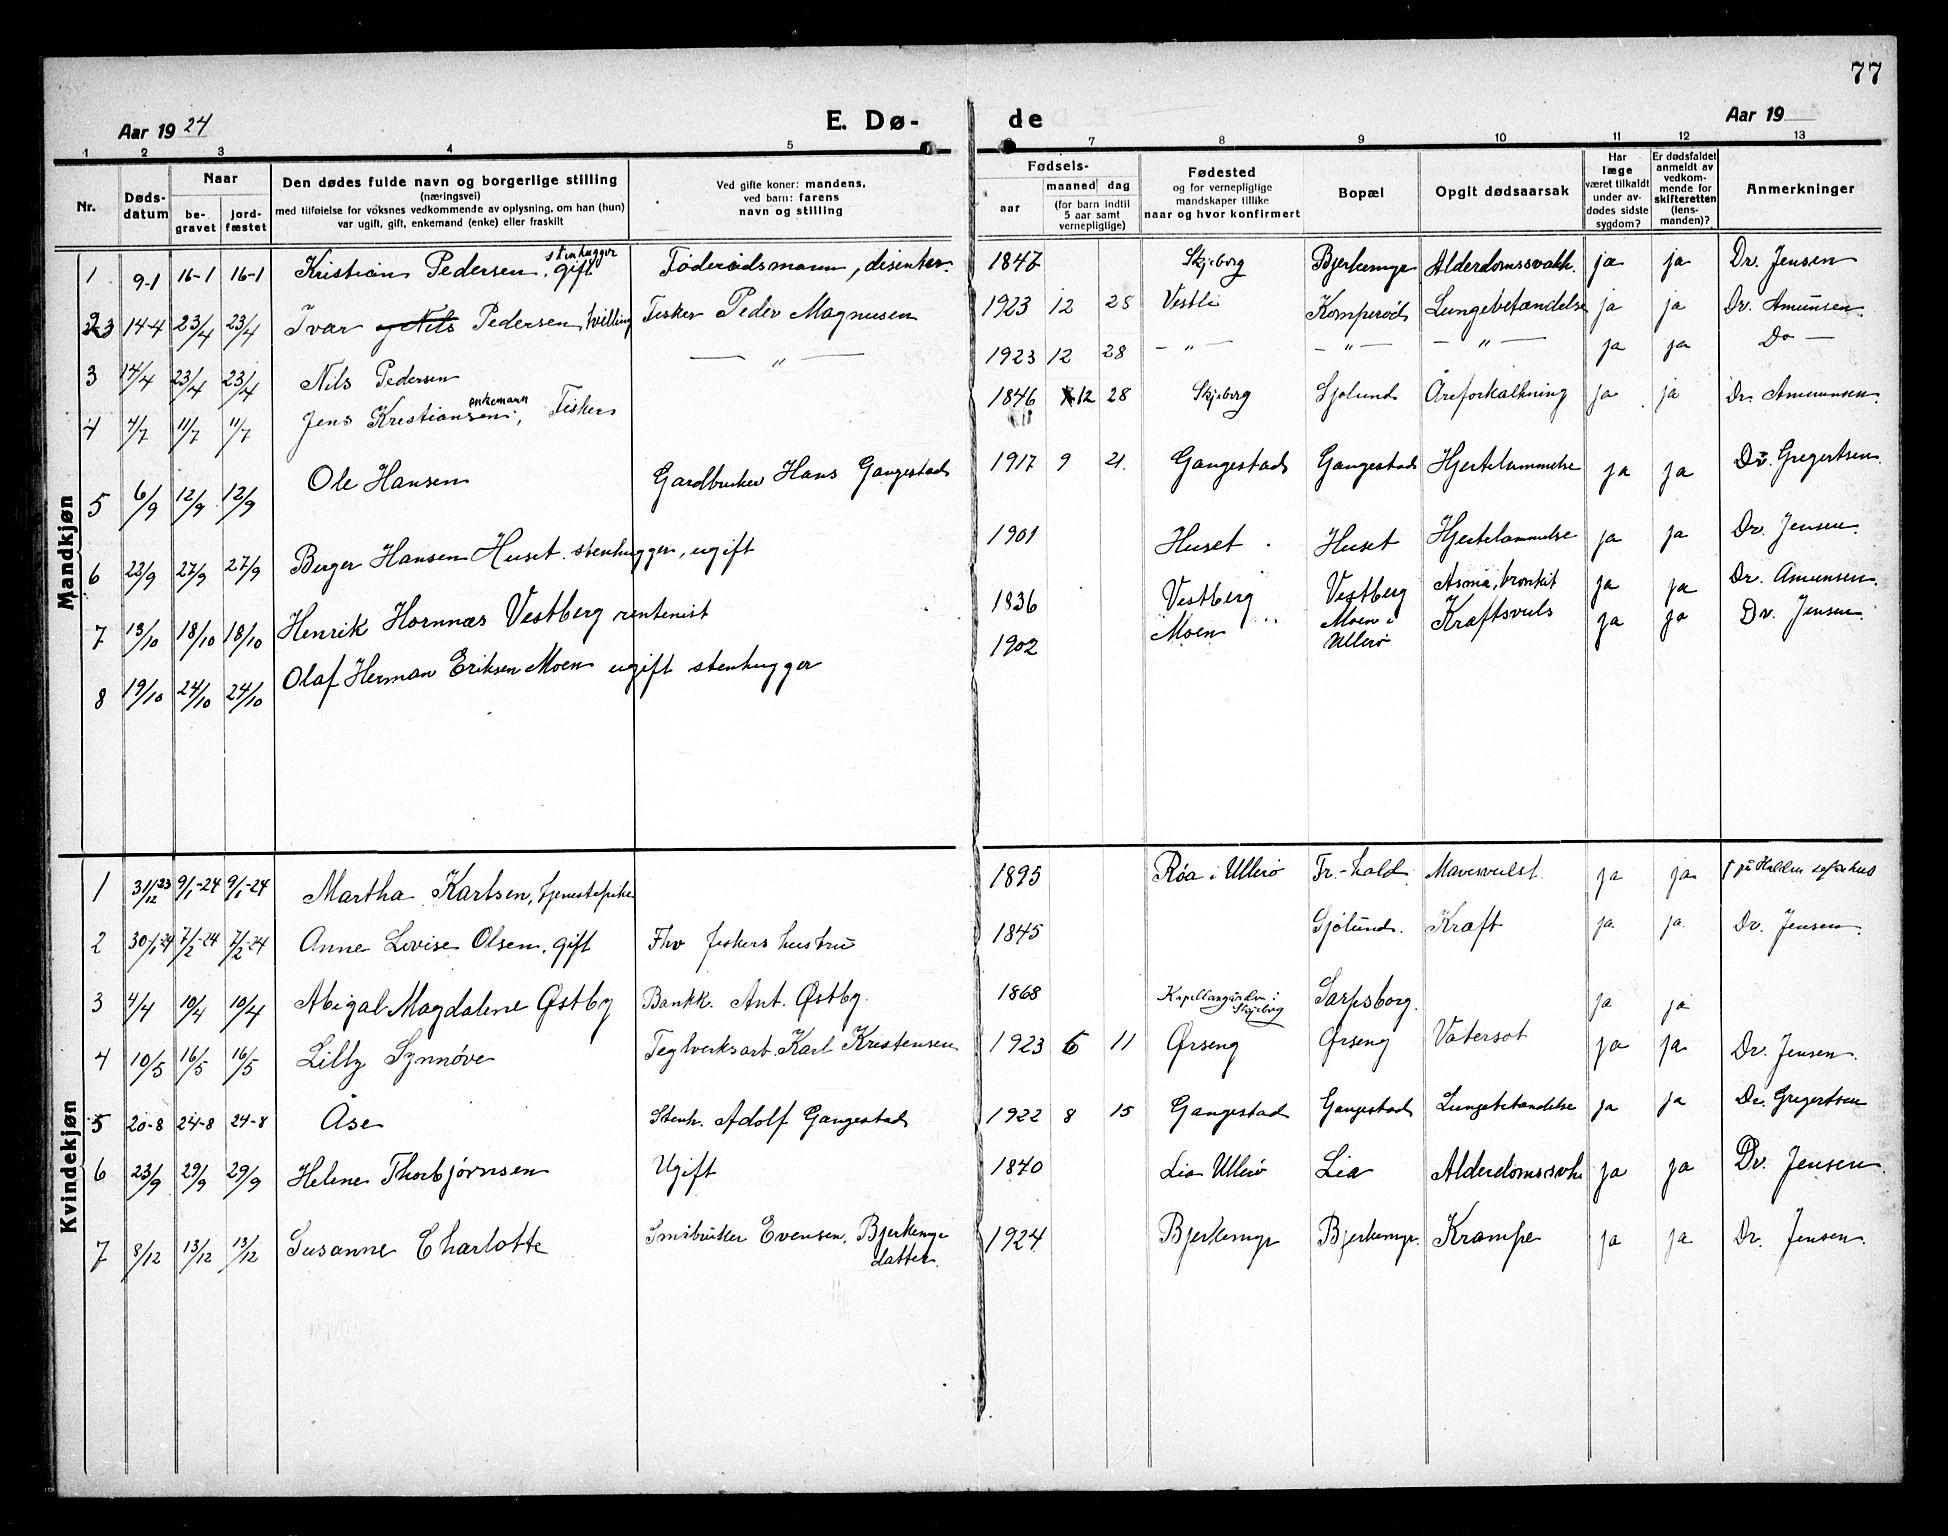 77
Aar 1924 E. Dø- de Aar 19
1 2 3 4 5 6 7 8 9 10 11 12 13
Nr. Døds-datum Naar be-gravet jord-fæstet Den dødes fulde navn og borgerlige stilling (næringsvei) med tilføielse for voksnes vedkommende av oplysning, om han (hun) var ugift, gift, enkemand (enke) eller fraskilt Ved gifte koner: mandens, ved barn: farens navn og stilling Fødsels- aar maaned dag (for barn indtil 5 aar samt vernepligtige) Fødested og for vernepligtige mandskaper tillike naar og hvor konfirmert Bopæl Opgit dødsaarsak Har læge været tilkaldt under av-dødes sidste sygdom? Er dødsfaldet anmeldt av vedkom-mende for skifteretten (lens-manden)? Anmerkninger
Mandkjøn
1 9-1 16-1 16-1 Kristian Pedersen, stenhugger gift Føderådsmann, disenter. 1847 Skjeberg Bjerkemyr Alderdomssvakh. ja ja Dr. Jensen
2 14-4 23/4 23/4 Ivar og Nils Pedersen, tvilling Fisker Peder Magnusen 1923 12 28 Vestli Komperød Lungebetændelse ja ja Dr. Amunsen.
3 14/4 23/4 23/4 Nils Pedersen — " — 1923 12 28 — " — — " — — " — ja ja Do —
4 4/7 11/7 11/7 Jens Kristiansen, enkemann Fisker 1846 12 28 Skjeberg Sjølund Åreforkalkning ja ja Dr. Amunsen.
5 6/9 12/9 12/9 Ole Hansen Gardbruker Hans Gangestad 1917 9 21. Gangestad Gangestad Hjertelammelse ja ja Dr. Gregertsen.
6 22/9 27/9 27/9 Berger Hansen Huset. stenhugger, ugift 1901 Huset. Huset Hjertelammelse ja ja Dr. Jensen.
7 13/10 18/10 18/10 Henrik Hornnæs Vestberg rentenist 1836 Vestberg Vestberg Asma, bronkit ja ja Dr. Amunsen.
8 19/10 24/10 24/10 Olaf Herman Eriksen Moen ugift stenhugger 1902 Moen Moen i Ullerø Kræftsvuls ja ja Dr. Jensen
Kvindekjøn
1 31/12 23 9/1-24 9/1-24 Martha Karlsen, tjenestepike 1895 Røa i Ullerø Fr.-hald. Mavesvulst. ja ja † på Halden
2 30/1-24 7/2-24 7/2-24 Anne Lovise Olsen, gift Fhv fiskers hustru 1845 Sjølund. Kræft ja ja Dr. Jensen.
3 4/4 10/4 10/4 Abigal Magdalene Østby Bankk. Ant. Østby. 1868 Kapellangården i Skjeberg Sarpsborg. ja ja
4 10/5 16/5 16/5 Lilly Synnøve Teglverksarb. Karl Kristensen 1923 6 11 Ørseng Ørseng Vatersot ja ja Dr. Jensen.
5 20-8 24-8 24-8 Åse Stenh. Adolf Gangestad 1922 8 15 Gangestad Gangestad Lungebetændelse ja ja Dr. Gregertsen
6 23/9 29/9 29/9 Helene Thorbjørnsen Ugift 1840 Lia Ullerø Lia Alderdomssvkh ja ja Dr. Jensen.
7 8/12 13/12 13/12 Susanne Charlotte Småbruker Evensen, Bjerkemyr datter. 1924 Bjerkemyr Bjerkemyr. Krampe ja ja Dr. Jensen.